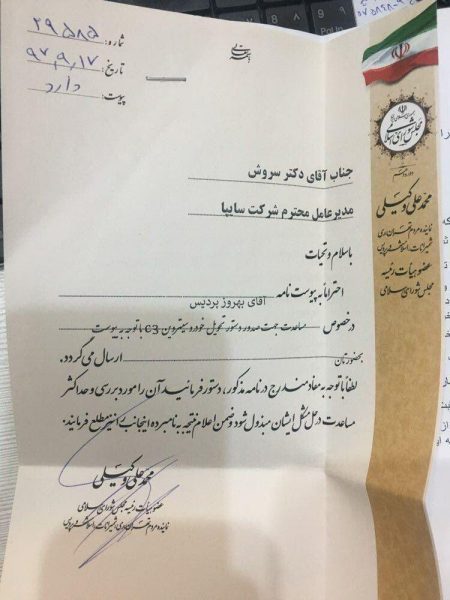 شماره: ۲۹۵۸۵
تاریخ: ۹۷،۹،۱۷
پیوست: دارد
مجلس شورای اسلامی
محمدعلی وکیلی
نماینده مردم تهران، ری
شمیرانات، اسلامشهر و پردیس
عضو هیأت رئیسه
مجلس شورای اسلامی
جناب آقای دکتر سروش
مدیرعامل محترم شرکت سایپا
باسلام و تحیات
احتراماً به پیوست نامه آقای بهروز پردیس
در خصوص مساعدت جهت صدور دستور تحویل خودرو سیتروین c3 با توجه به پیوست
بحضورتان ارسال می گردد.
لطفاً با توجه به مفاد مندرج در نامه مذکور، دستور فرمائید آن را مورد بررسی و حداکثر
مساعدت در حل مشکل ایشان مبذول شود و ضمن اعلام نتیجه به نامبرده اینجانب را نیز مطلع فرمایند.
محمدعلی وکیلی
عضو هیأت رئیسه مجلس شورای اسلامی
نماینده مردم تهران، ری، شمیرانات، اسلامشهر و پردیس